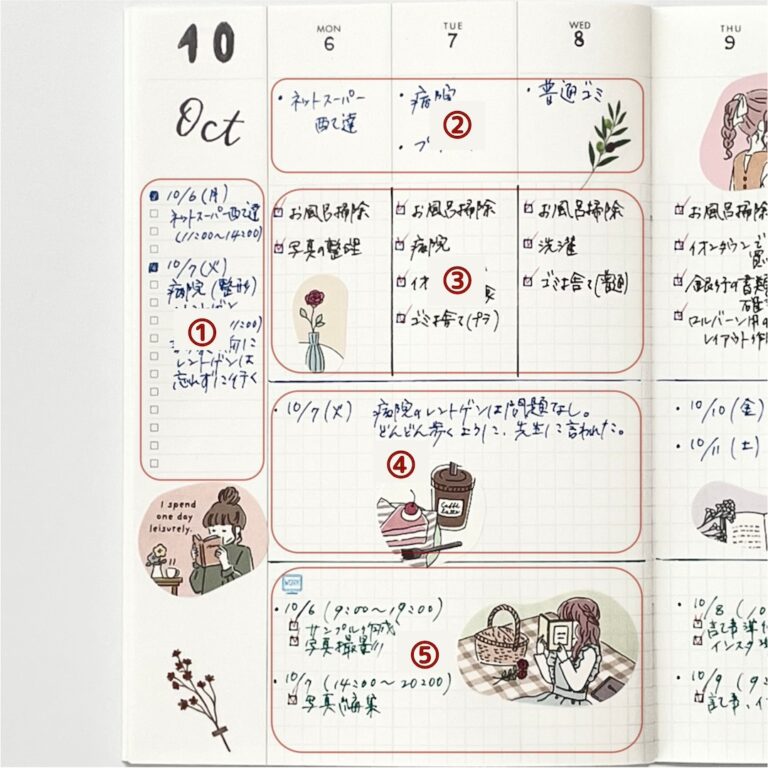 10
Oct
MON
6
TUE
7
WED
8
THU
9
・ネットスーパー
配達
・病院
・プ
②
・普通ゴミ
10/6(月)
ネットスーパー配達
(11:00〜14:00)
10/7(火)
病院(整形)
①
:00)
レントゲンは
忘れずに行く
お風呂掃除
写真の整理
お風呂掃除
病院
イオ
③
ゴミ捨て(プラ)
お風呂掃除
洗濯
ゴミ捨て(普通)
お風呂掃除
イオンタウンで
銀行の書類
ロルバーン用の
レイアウト作
・10/7(火) 病院のレントゲンは問題なし。
どんどん歩くように、先生に言われた。
④
Caffè
Latte
・10/10(金)
・10/11(土)
I spend
one day
leisurely.
WORK
・10/6(9:00〜19:00)
サンプル作成
写真撮影
・10/7(14:00〜20:00)
写真編集
⑤
・10/8(10
記事準
インスタ
・10/9(9:
記事、イ